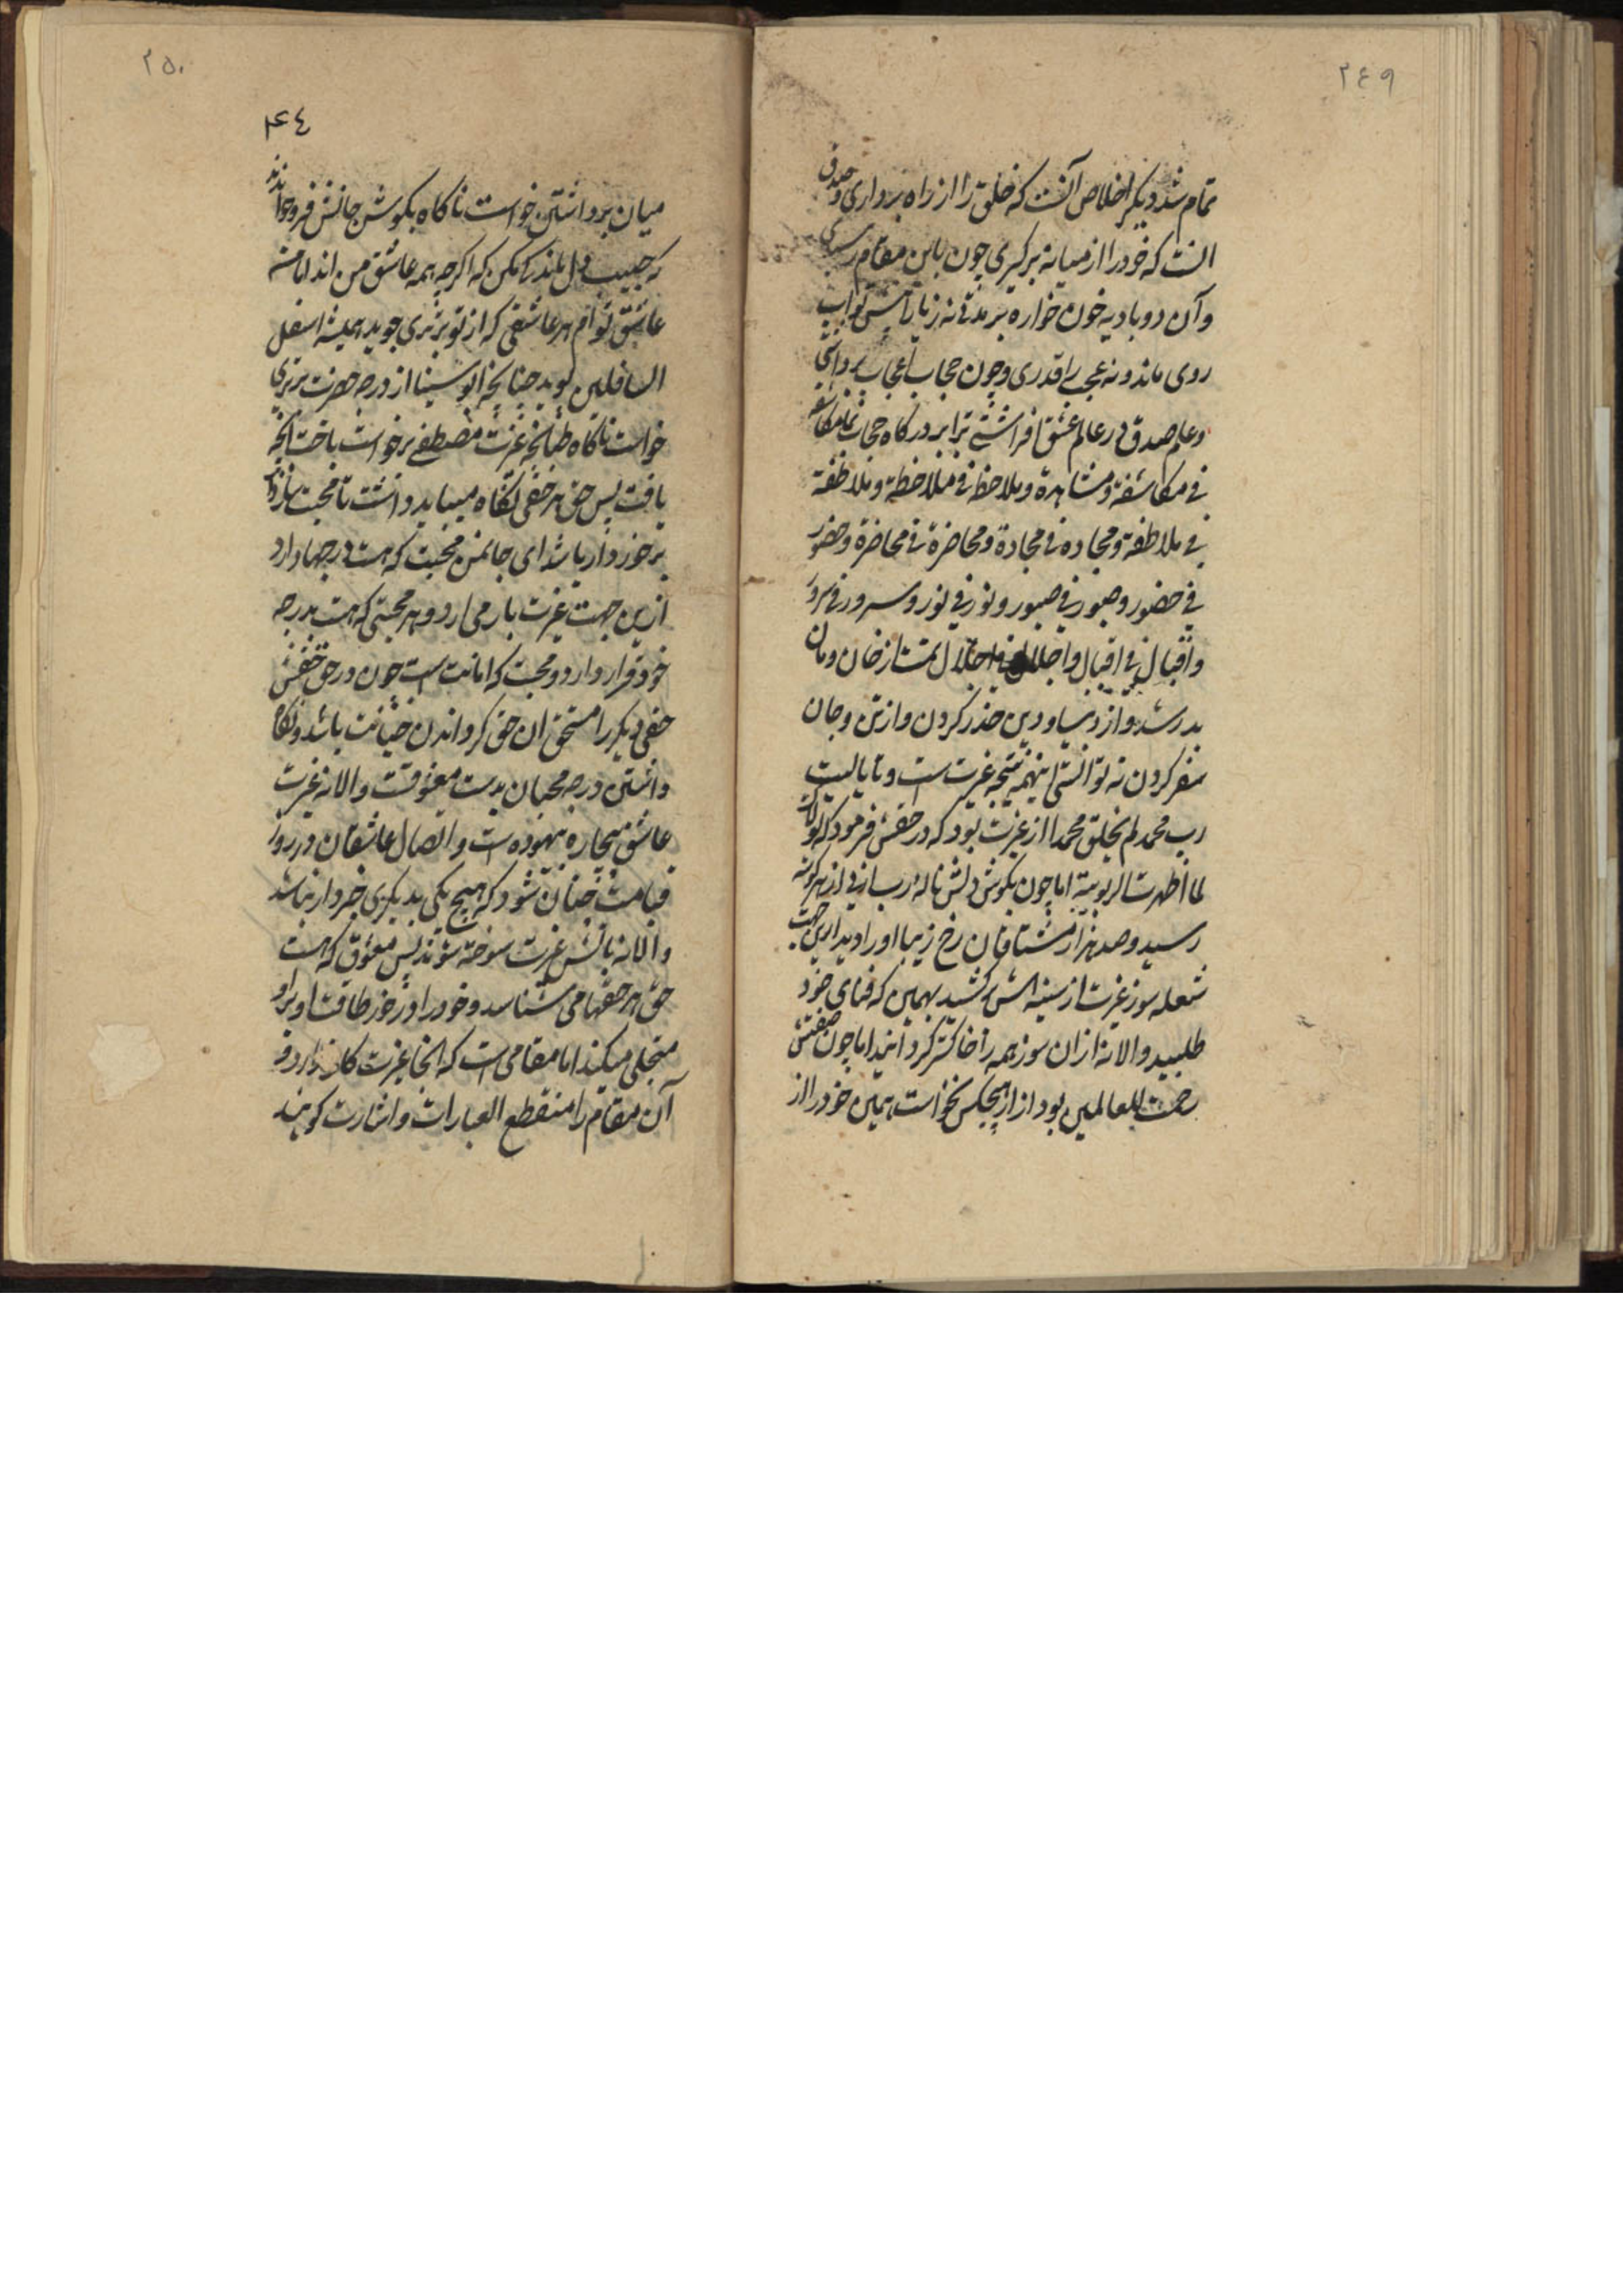 ٢٤٩
تمام شد دیگر اخلاص آنست که خلق را از راه برداری و صدق
انست که خود را از میانه برگیری چون باین مقام رسیدی
و آن دو بادیه خون خواره بریدی نه ریا را پیش تو آب
روی ماند و نه عجب را قدری و چون حجاب اعجاب برداشتی
و علم صدق در عالم عشق افراشتی ترا بر درگاه حجاب نماند مکاشفه
فی مکاشفة و مشاهدة و ملاحظة فی ملاحظة و ملاطفة
فی ملاطفة و مجاده فی مجادة و محاضرة فی محاضرة و حضور
فی حضور و صبور فی صبور و نور فی نور و سرور فی سرور
و اقبال فی اقبال و اجلال فی اجلال از خان و مان
بدر شد و از دنیا و دین حذر کردن و از تن و جان
سفر کردن نه توانستی اینهمه نتیجه غیرت است و تا یا لیت
رب محمد لم یخلق محمدا از غیرت بود که در حقش فرمود که لولاک
لما اظهرت الربوبیة اما چون بگوش دلش ناله رب ارنی از هر گونه
رسید و صد هزار مشتاقان رخ زیبا او را دید ازین جهت
شعله سوز غیرت از سینه اش سر کشید بهمین که فنای خود
طلبید و الا نه ازان سوز همه را خاکستر گردانید اما چون صفتش
رحمت للعالمین بود ازار هیچکس نخواست همین خود را از
٢٥٠
٤٤
میان برداشتن خواست ناگاه بگوش جانش فرو خواندند
که حبیب دل بلند کن که اگرچه همه عاشق من اند اما من
عاشق تو ام هر عاشقی که از تو برتری جوید همیشه اسفل
السافلین بوید چنانچه ابو سینا از درجه حضرت برتری
خواست ناگاه طبانچه غیرت مصطفی برخواست یافت آنچه
یافت پس حق هر حقی نگاه میباید داشت تا محبت
برخوردار باشد ای جانمن محبت که هست درجها دارد
ازین جهت غیرت بار می ارد و هر محبتی که هست بدرجه
خود قرار دارد و محبت که امانت است چون در حق حقش
حقی دیگر را مستحق ان حق گرداندن خیانت باشد و نگاه
داشتن درجه محبان بدست معشوقست و الا نه غیرت
عاشق بیچاره بیهوده است و اتصال عاشقان در روز
قیامت چنان شود که هیچ یکی بدیگری خبردار نباشد
و الا نه باتش غیرت سوخته شوند پس معشوق که هست
حق هر حقها می شناسد و خود را در خور طاقت او برو
متجلی میکند اما مقامی است که انجا غیرت کار ندارد و
آن مقام را منقطع العبارات و اشارت گویند